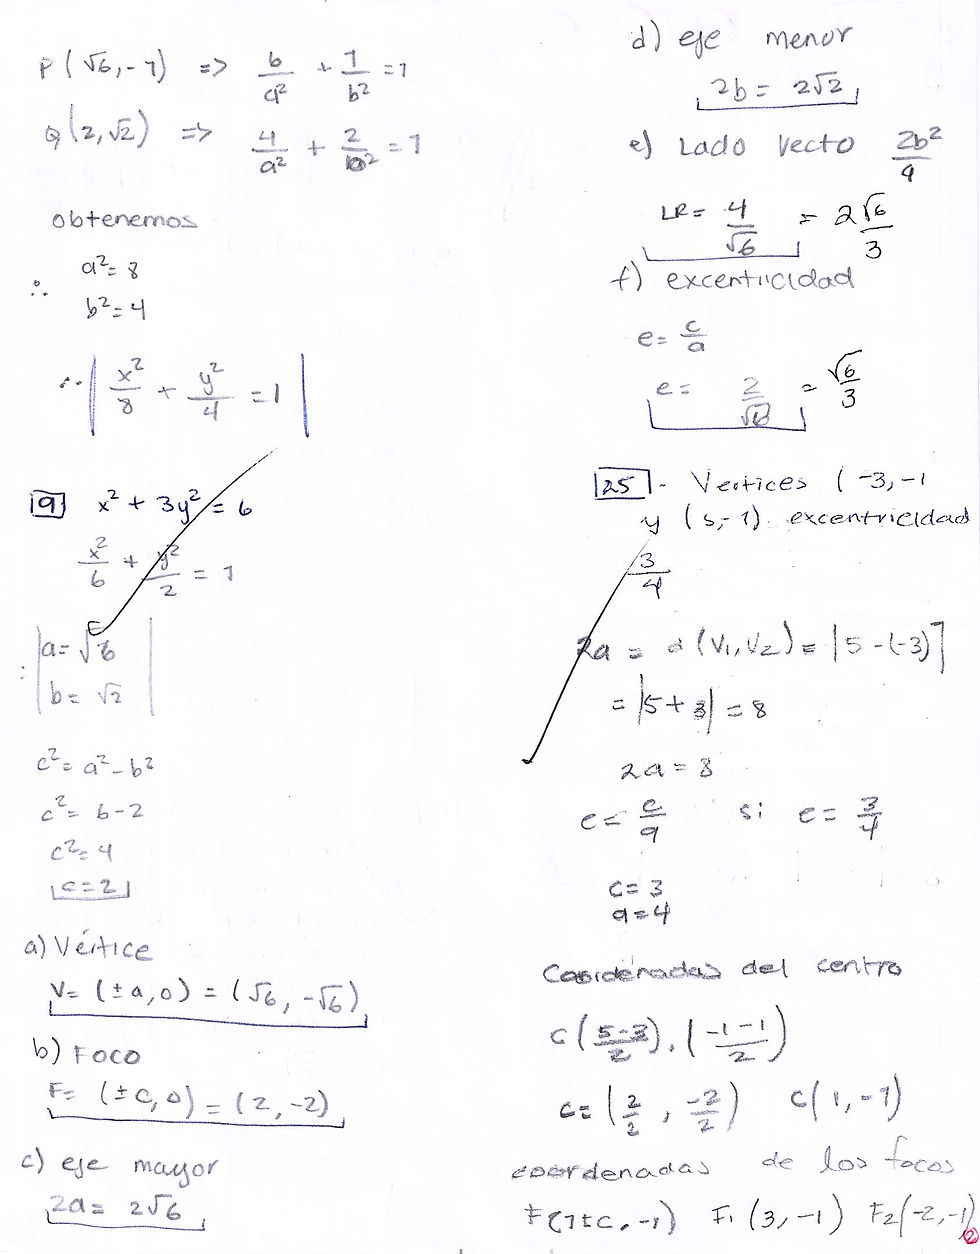 P(√6,-1) => b/a² + 1/b² = 1
Q(2,√2) => 4/a² + 2/b² = 1
obtenemos
∴ a² = 8
b² = 4
∴ | x²/8 + y²/4 = 1 |
9 x² + 3y² = 6
x²/6 + y²/2 = 1
: | a = √6
b = √2 |
c² = a² - b²
c² = 6 - 2
c² = 4
c = 2
a) Vértice
V = (±a, 0) = (√6, -√6)
b) Foco
F = (±c, 0) = (2, -2)
c) eje mayor
2a = 2√6
d) eje menor
2b = 2√2
e) Lado recto 2b²/a
LR = 4/√6 = 2√6/3
f) excentricidad
e = c/a
e = 2/√6 = √6/3
25 - Vertices (-3,-1
y (5,-1) excentricidad
3/4
2a = d(V₁,V₂) = |5-(-3)|
= |5+3| = 8
2a = 8
e = c/a si e = 3/4
c = 3
a = 4
Coordenadas del centro
C(5-3/2),(-1-1/2)
C = (2/2, -2/2) C(1,-1)
coordenadas de los focos
F(1±c,-1) F₁(3,-1) F₂(-2,-1)
2